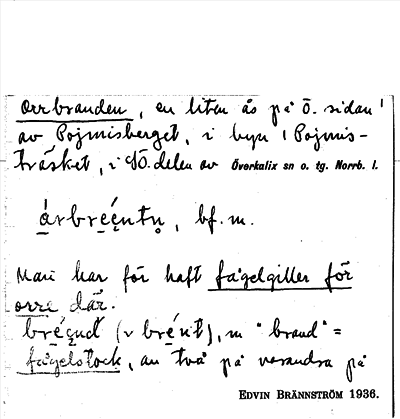 Orrbranden, en liten ås på Ö. sidan
av Pojmisberget, i byn Pojmis-
träsket, i SÖ. delen av Överkalix sn o. tg. Norrb. l.
bf. m.
Man har för haft fågelgiller för
orre där.
m "brand" =
fågelstock, av två på varandra på
EDVIN BRÄNNSTRÖM 1936.